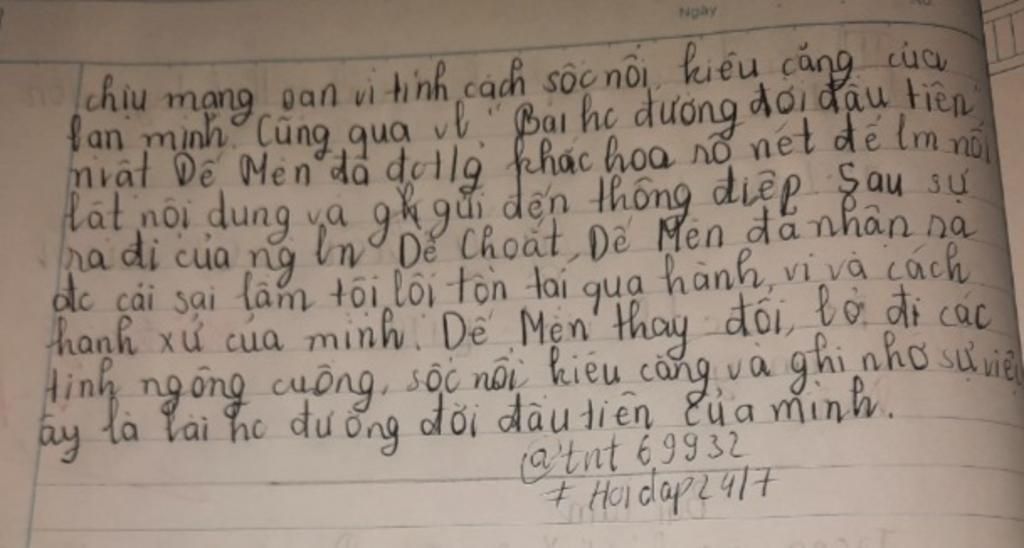 Ngày
chịu mạng oan vì tính cách sốc nổi, kiêu căng của
bản mình. Cũng qua vb "Bài hc đường đời đầu tiên,
nvật Dế Mèn đã đc tg khắc hoạ rõ nét để lm nổi
bật nội dung và gửi đến thông điệp. Sau sự
ra đi của ng bn Dế Choắt, Dế Mèn đã nhận ra
đc cái sai lầm tội lỗi tồn tại qua hành, vi và cách
hành xử của mình. Dế Mèn thay đổi, bỏ đi các
tính ngông cuồng, sốc nổi, kiêu căng và ghi nhớ sự việc
ấy là bài hc đường đời đầu tiên của mình.
@tnt69932
# Hoidap247